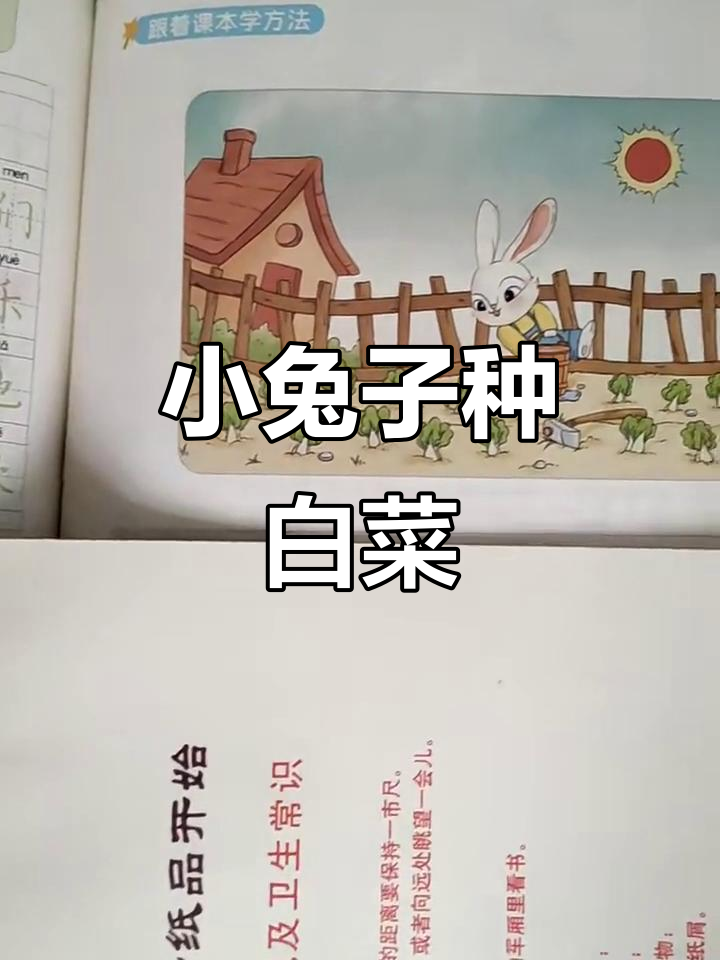 跟着课本学方法
men
们
yuè
乐
小兔子种
白菜
纸品开始
及卫生常识
的距离要保持一市尺。
或者向远处眺望一会儿。
车厢里看书。
物；
纸屑。